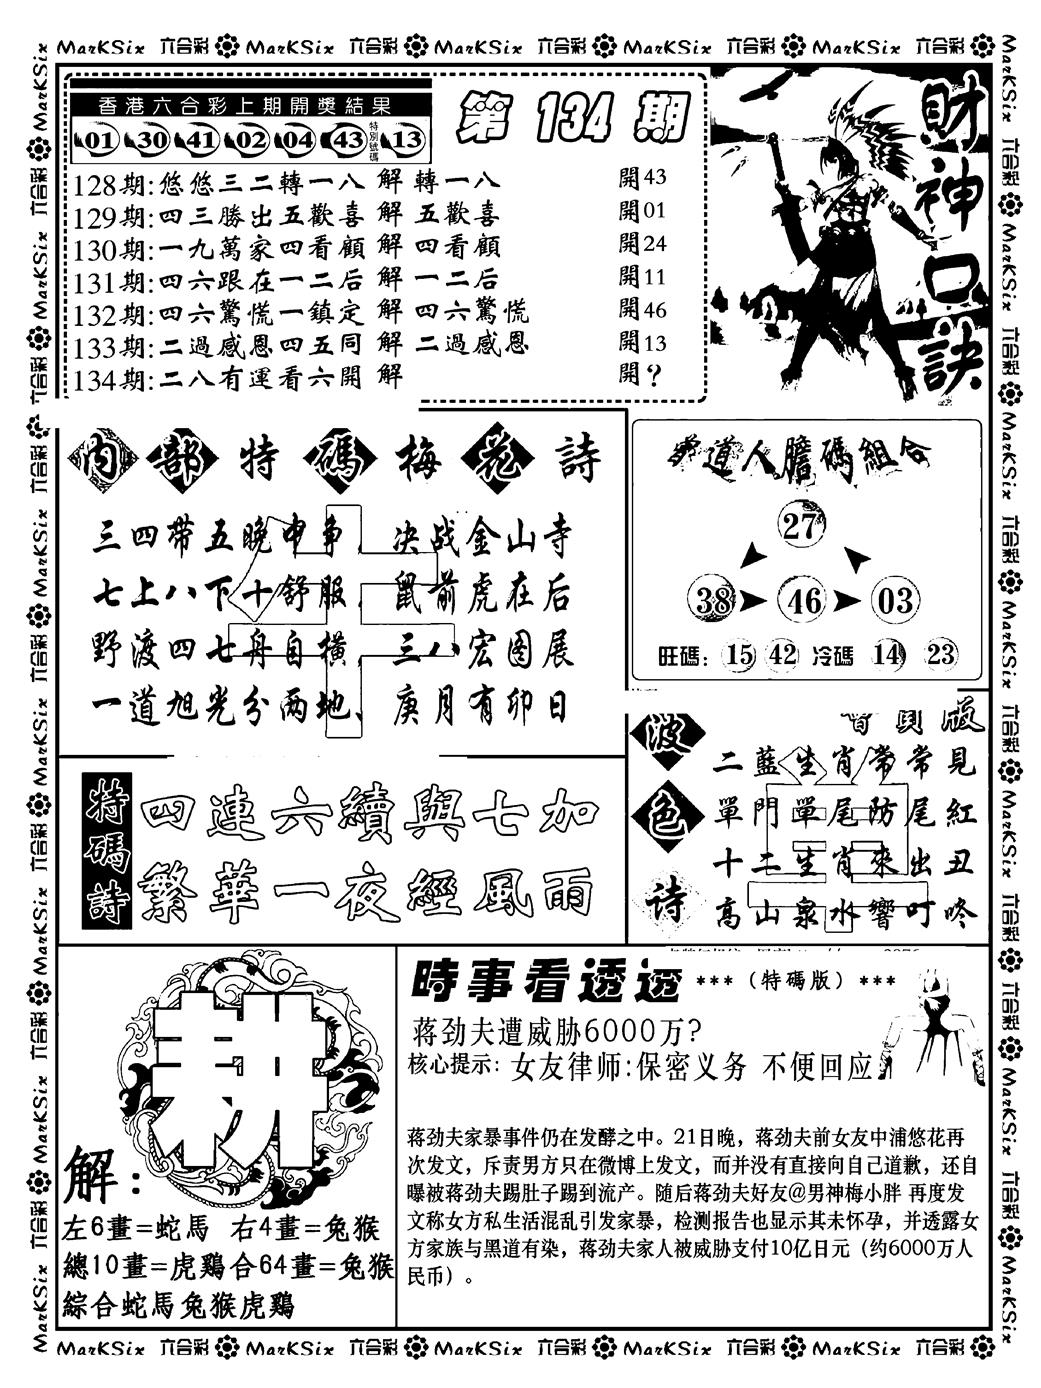 MarKSix 六合彩 MarKSix 六合彩 MarKSix 六合彩 MarKSix 六合彩 MarKSix 六合彩
香港六合彩上期開獎結果
01 30 41 02 04 43 特別號碼 13
第 134 期
128期:悠悠三二轉一八 解 轉一八 開43
129期:四三勝出五歡喜 解 五歡喜 開01
130期:一九萬家四看顧 解 四看顧 開24
131期:四六跟在一二后 解 一二后 開11
132期:四六驚慌一鎮定 解 四六驚慌 開46
133期:二過感恩四五同 解 二過感恩 開13
134期:二八有運看六開 解 開?
財神口訣
內部特碼梅花詩
三四带五晚申争, 决战金山寺
七上八下十舒服, 鼠前虎在后
野渡四七舟自横, 三八宏图展
一道旭光分两地、 庚月有卯日
道人膽碼組合
27
38 46 03
旺碼: 15 42 冷碼 14 23
特碼詩
四連六續與七加
繁華一夜經風雨
波色诗
二藍生肖常常見
單門單尾防尾紅
十二生肖來出丑
高山泉水響叮咚
耕
解:
左6畫=蛇馬 右4畫=兔猴
總10畫=虎鷄合64畫=兔猴
綜合蛇馬兔猴虎鷄
時事看透透 ***(特碼版)***
蒋劲夫遭威胁6000万?
核心提示: 女友律师:保密义务 不便回应
蒋劲夫家暴事件仍在发酵之中。21日晚，蒋劲夫前女友中浦悠花再
次发文，斥责男方只在微博上发文，而并没有直接向自己道歉，还自
曝被蒋劲夫踢肚子踢到流产。随后蒋劲夫好友@男神梅小胖 再度发
文称女方私生活混乱引发家暴，检测报告也显示其未怀孕，并透露女
方家族与黑道有染，蒋劲夫家人被威胁支付10亿日元（约6000万人
民币）。
MarKSix 六合彩 MarKSix 六合彩 MarKSix 六合彩 MarKSix 六合彩 MarKSix 六合彩